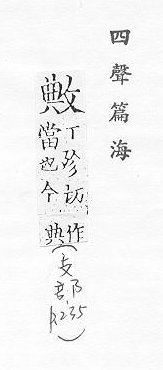 四聲篇海
敟
丁殄切
當也今
作
典
(支部 p.235)